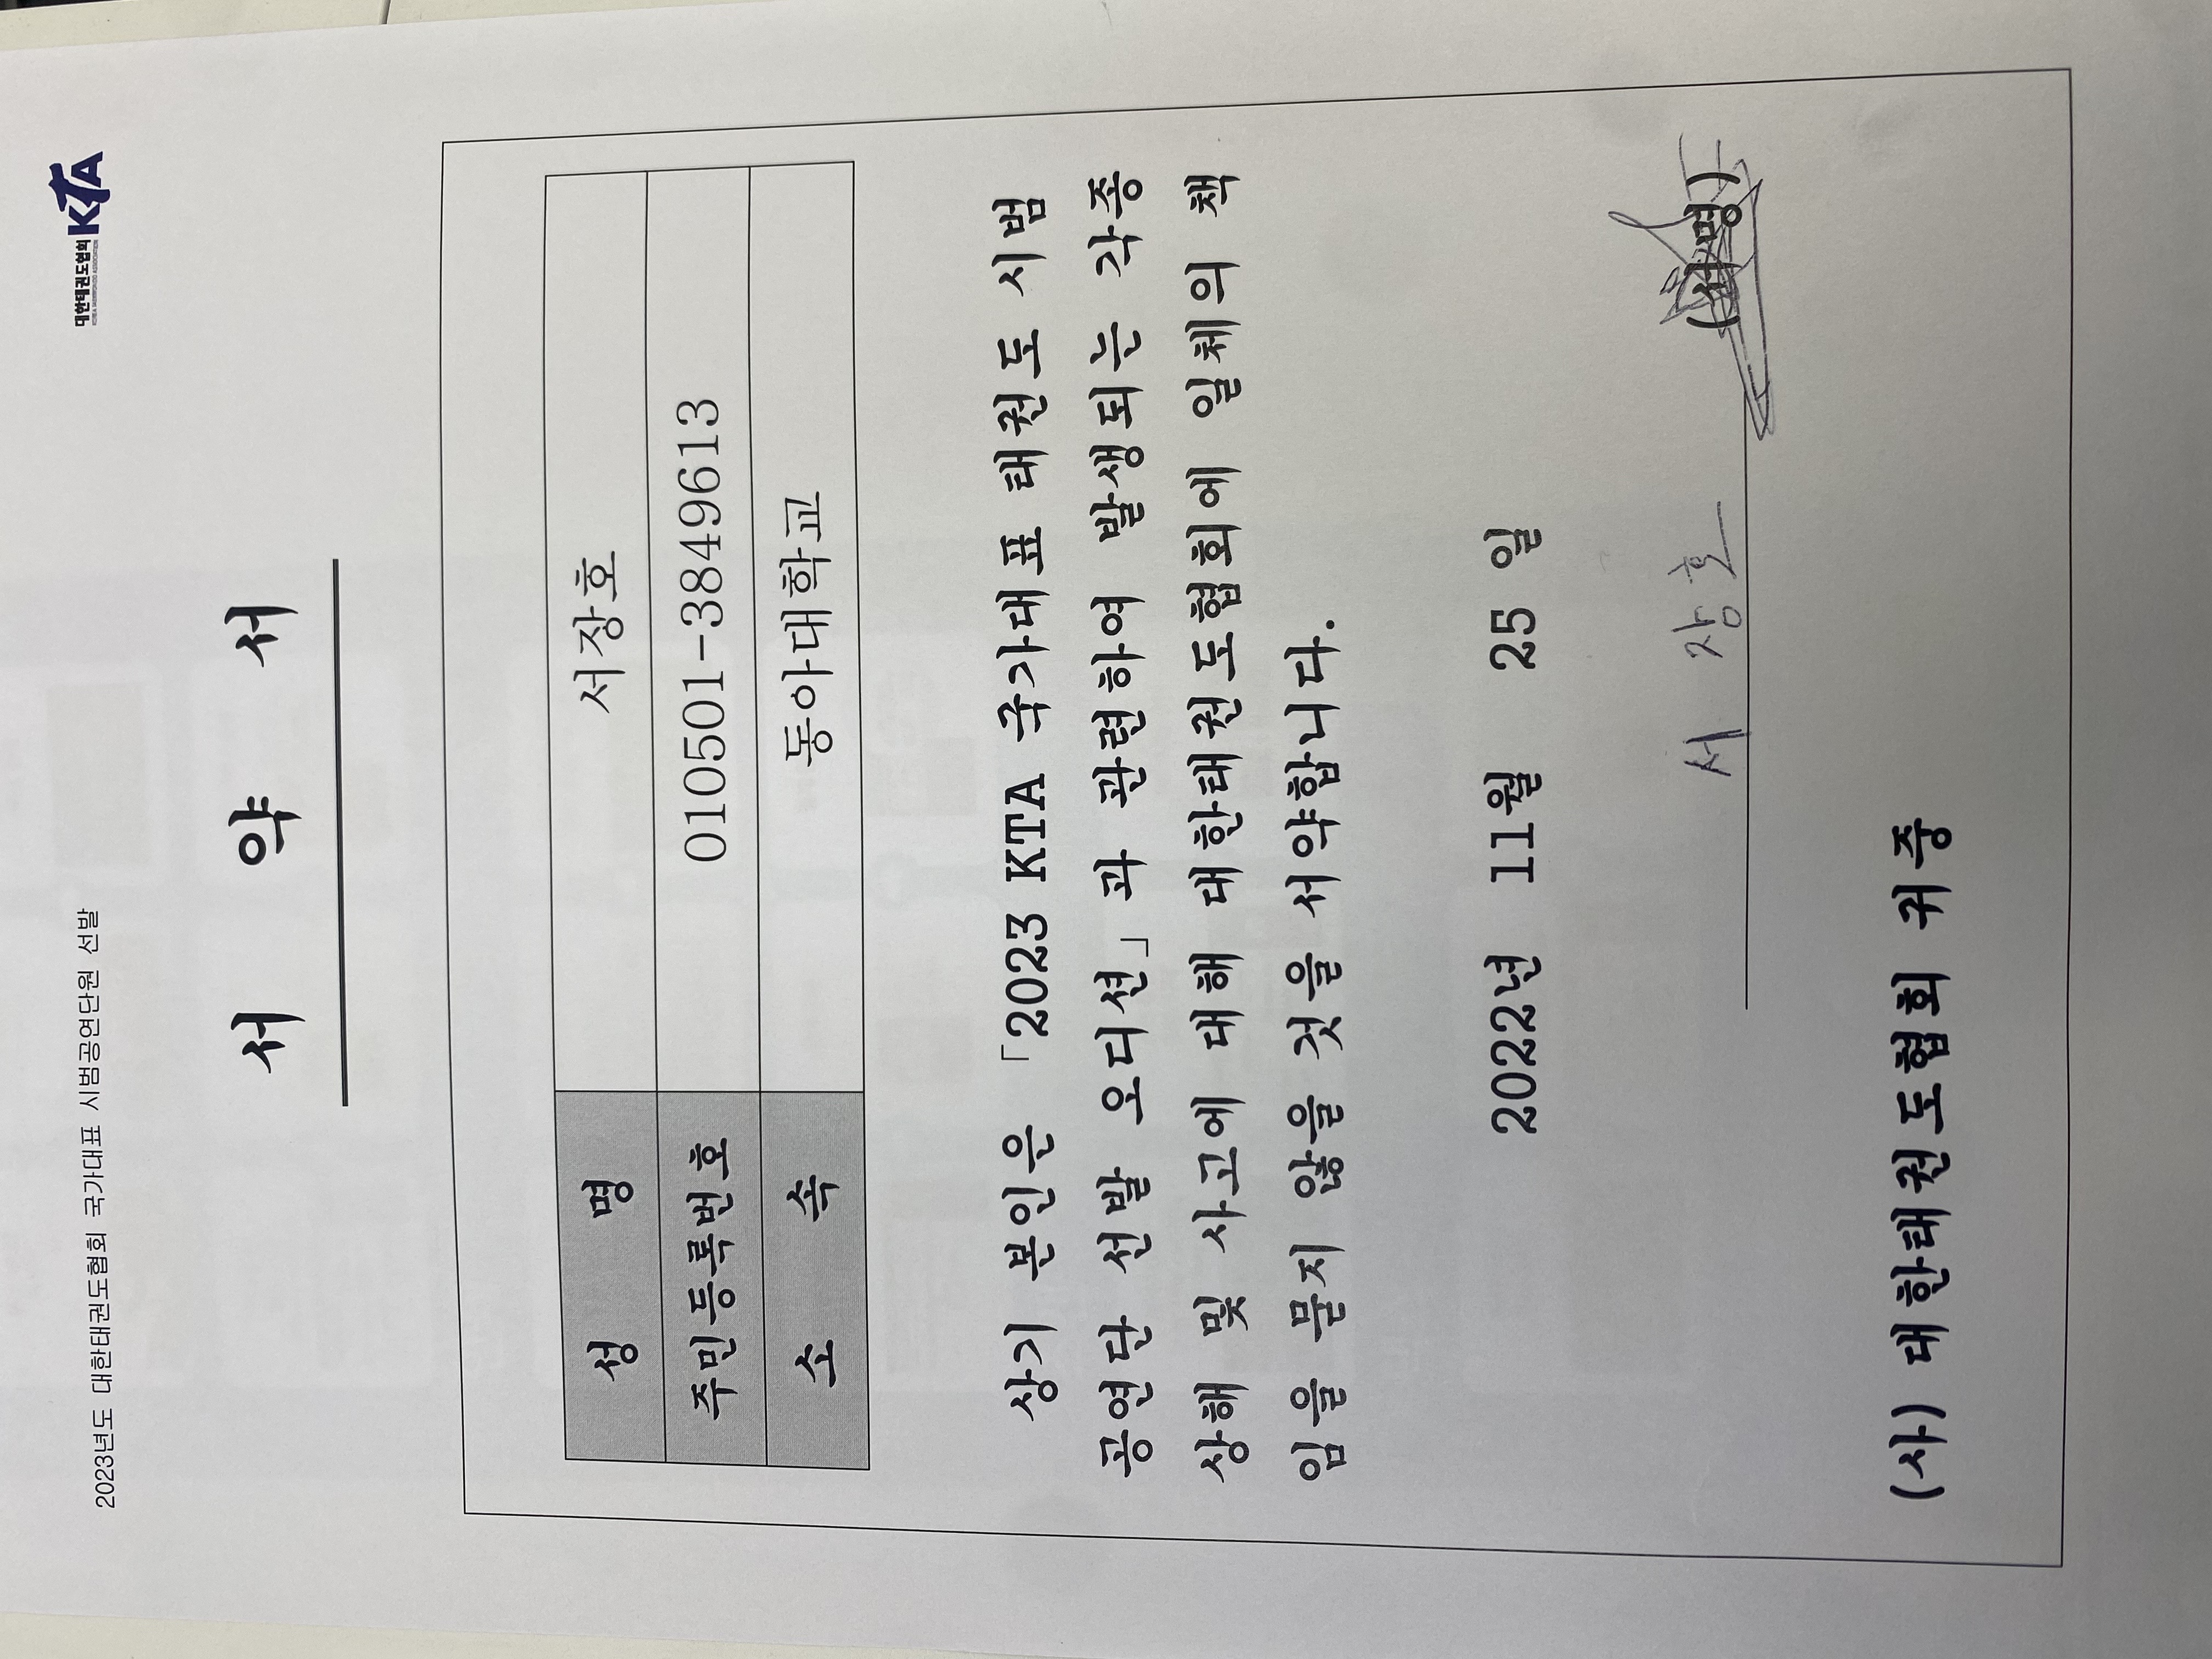 2023년도 대한태권도협회 국가대표 시범공연단원 선발
대한태권도협회 KTA
KOREA TAEKWONDO ASSOCIATION
서 약 서
성 명 서장호
주민등록번호 010501-3849613
소 속 동아대학교
상기 본인은 「2023 KTA 국가대표 태권도 시범
공연단 선발 오디션」과 관련하여 발생되는 각종
상해 및 사고에 대해 대한태권도협회에 일체의 책
임을 묻지 않을 것을 서약합니다.
2022년 11월 25일
서 장호 (서명)
(사) 대한태권도협회 귀중